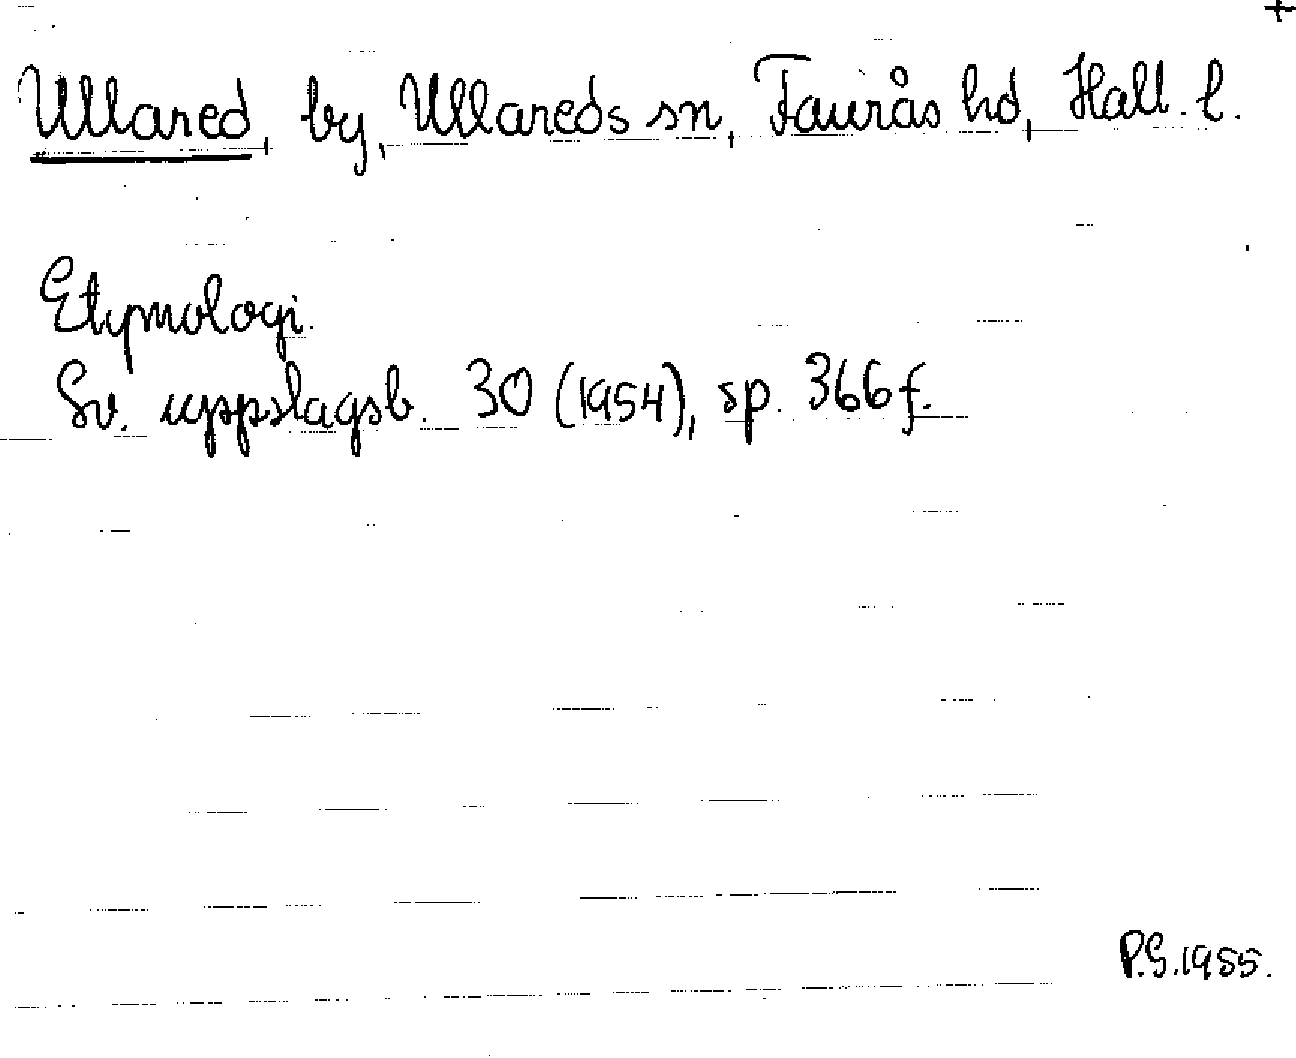 +
Ullared, by, Ullareds sn, Faurås hd, Hall. l.
Etymologi.
Sv. uppslagsb. 30 (1954), sp. 366 f.
P.S. 1955.